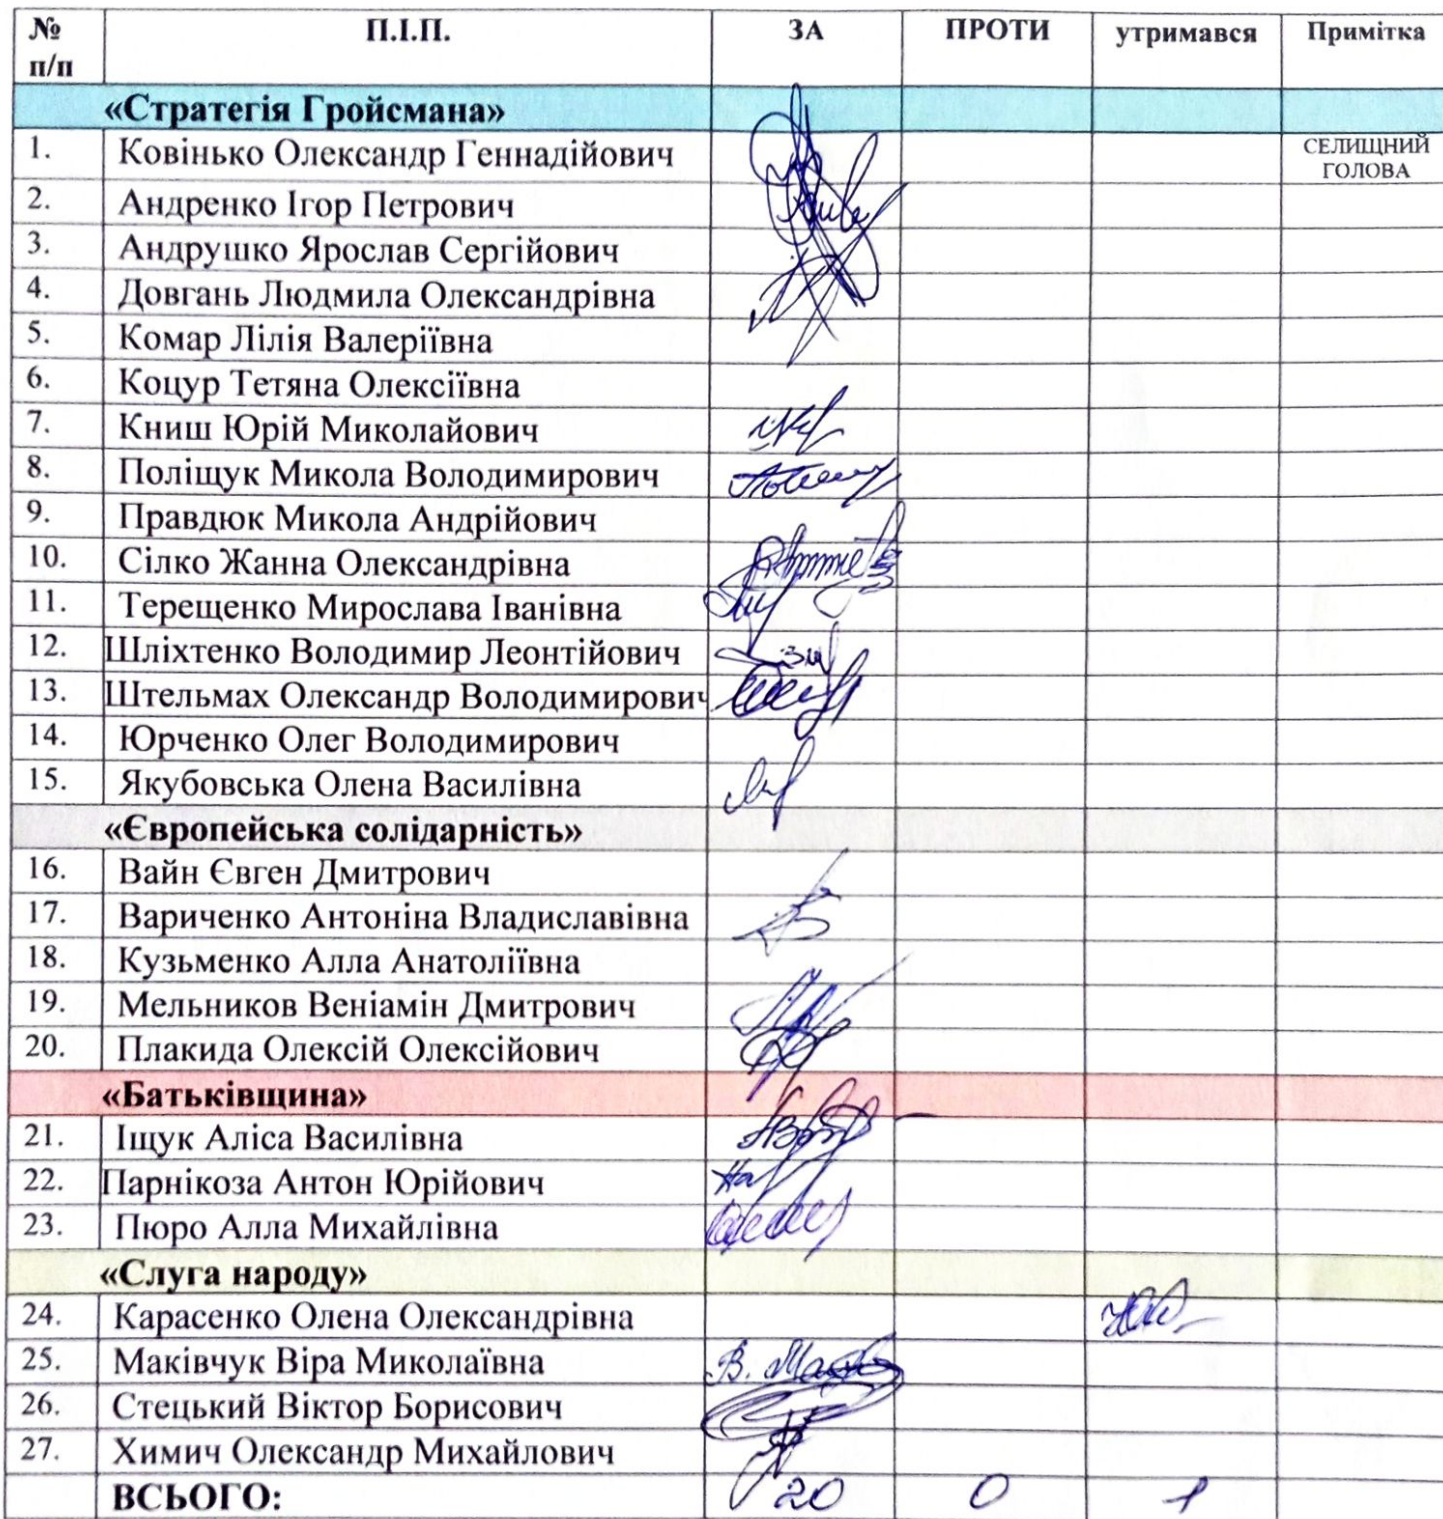 № п/п П.І.П. ЗА ПРОТИ утримався Примітка
«Стратегія Гройсмана»
1. Ковінько Олександр Геннадійович СЕЛИЩНИЙ ГОЛОВА
2. Андренко Ігор Петрович
3. Андрушко Ярослав Сергійович
4. Довгань Людмила Олександрівна
5. Комар Лілія Валеріївна
6. Коцур Тетяна Олексіївна
7. Книш Юрій Миколайович
8. Поліщук Микола Володимирович
9. Правдюк Микола Андрійович
10. Сілко Жанна Олександрівна
11. Терещенко Мирослава Іванівна
12. Шліхтенко Володимир Леонтійович
13. Штельмах Олександр Володимирович
14. Юрченко Олег Володимирович
15. Якубовська Олена Василівна
«Європейська солідарність»
16. Вайн Євген Дмитрович
17. Вариченко Антоніна Владиславівна
18. Кузьменко Алла Анатоліївна
19. Мельников Веніамін Дмитрович
20. Плакида Олексій Олексійович
«Батьківщина»
21. Іщук Аліса Василівна
22. Парнікоза Антон Юрійович
23. Пюро Алла Михайлівна
«Слуга народу»
24. Карасенко Олена Олександрівна
25. Маківчук Віра Миколаївна
26. Стецький Віктор Борисович
27. Химич Олександр Михайлович
ВСЬОГО: 20 0 1